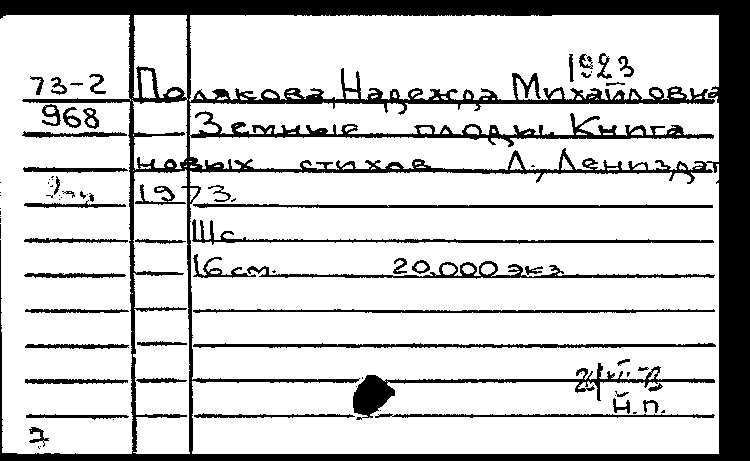 1923
73-2 Полякова, Надежда Михайловна
968 Земные плоды. Книга
новых стихов Л., Лениздат,
1973.
111 с.
16 см. 20.000 экз.
Н.П.
7